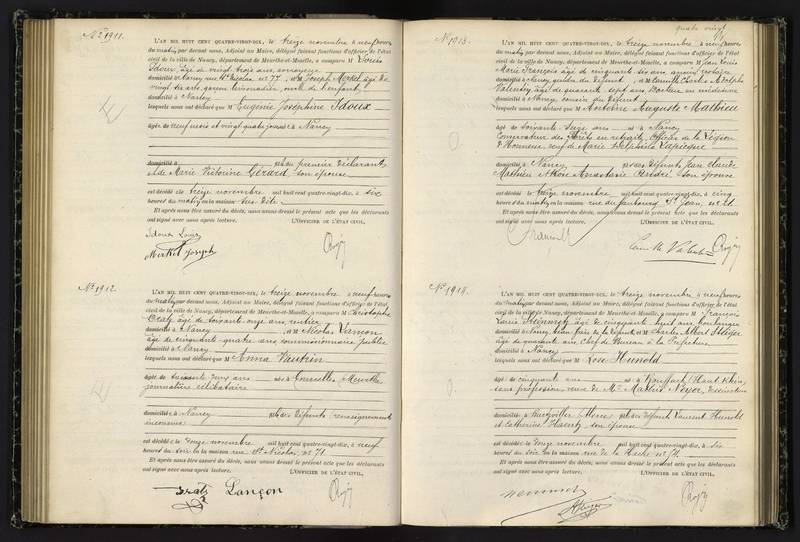 N° 1911.
L'AN MIL HUIT CENT QUATRE-VINGT-DIX, le treize novembre à neuf heures
du matin, par devant nous, Adjoint au Maire, délégué faisant fonctions d'officier de l'état
civil de la ville de Nancy, département de Meurthe-et-Moselle, a comparu M Louis
Idoux, âgé de vingt trois ans,
domicilié à Nancy rue St Nicolas n° 77, et M Joseph Merkel âgé de
vingt six ans garçon limonadier, oncle de l'enfant
domicilié à Nancy
lesquels nous ont déclaré que M Eugénie Joséphine Idoux
âgée de neuf mois et vingt quatre jours né à Nancy
domicilié à fille du premier déclarant
et de Marie Victorine Gérard, son épouse
est décédé le treize novembre mil huit cent quatre-vingt-dix, à six
heures du matin en la maison sus dite
Et après nous être assuré du décès, nous avons dressé le présent acte que les déclarants
ont signé avec nous après lecture. L'OFFICIER DE L'ÉTAT CIVIL,
Idoux Louis
Merkel Joseph
N° 1912.
L'AN MIL HUIT CENT QUATRE-VINGT-DIX, le treize novembre à neuf heures
du matin, par devant nous, Adjoint au Maire, délégué faisant fonctions d'officier de l'état
civil de la ville de Nancy, département de Meurthe-et-Moselle, a comparu M Christophe
âgé de soixante onze ans, rentier
domicilié à Nancy, et M Nicolas Lançon
âgé de cinquante-quatre ans, commissionnaire public
domicilié à Nancy
lesquels nous ont déclaré que M Anna Vautrin
âgée de ans née à Courcelles (Meurthe)
journalière célibataire
domiciliée à Nancy fille des défunts (renseignements
inconnus)
est décédée le onze novembre mil huit cent quatre-vingt-dix, à neuf
heures du soir en la maison rue St Nicolas, n° 71.
Et après nous être assuré du décès, nous avons dressé le présent acte que les déclarants
ont signé avec nous après lecture. L'OFFICIER DE L'ÉTAT CIVIL,
Lançon
quatre vingt
N° 1913.
L'AN MIL HUIT CENT QUATRE-VINGT-DIX, le treize novembre à neuf heures
du matin, par devant nous, Adjoint au Maire, délégué faisant fonctions d'officier de l'état
civil de la ville de Nancy, département de Meurthe-et-Moselle, a comparu M Jean Louis
Marie François âgé de cinquante six ans, ancien notaire
domicilié à Nancy, gendre du défunt, et M Camille Charles Adolphe
Valentin, âgé de quarante sept ans Docteur en médecine
domicilié à Nancy, cousin du défunt
lesquels nous ont déclaré que M Antoine Auguste Mathieu
âgé de soixante seize ans né à Nancy
Conservateur des forêts en retraite, Officier de la Légion
d'Honneur, veuf de Marie Delphine Lapicque
domicilié à Nancy fils des défunts Jean Claude
Mathieu et Rose Anastasie André son épouse
est décédé le treize novembre mil huit cent quatre-vingt-dix, à cinq
heures du matin en la maison rue du faubourg St Jean, n°
Et après nous être assuré du décès, nous avons dressé le présent acte que les déclarants
ont signé avec nous après lecture. L'OFFICIER DE L'ÉTAT CIVIL,
N° 1914.
L'AN MIL HUIT CENT QUATRE-VINGT-DIX, le treize novembre à neuf heures
du matin, par devant nous, Adjoint au Maire, délégué faisant fonctions d'officier de l'état
civil de la ville de Nancy, département de Meurthe-et-Moselle, a comparu M François
Louis âgé de cinquante huit ans, boulanger
domicilié à Nancy, beau frère de la défunte et M Charles Albert
âgé de quarante ans, Chef de Bureau à la Préfecture
domicilié à Nancy
lesquels nous ont déclaré que M Rose Hunold
âgée de cinquante ans née à Rouffach (Haut Rhin)
sans profession, veuve de M
domiciliée à fille des défunts Laurent Hunold
et Catherine son épouse
est décédée le onze novembre mil huit cent quatre-vingt-dix, à six
heures du soir en la maison rue de la Hache n° 74.
Et après nous être assuré du décès, nous avons dressé le présent acte que les déclarants
ont signé avec nous après lecture. L'OFFICIER DE L'ÉTAT CIVIL,